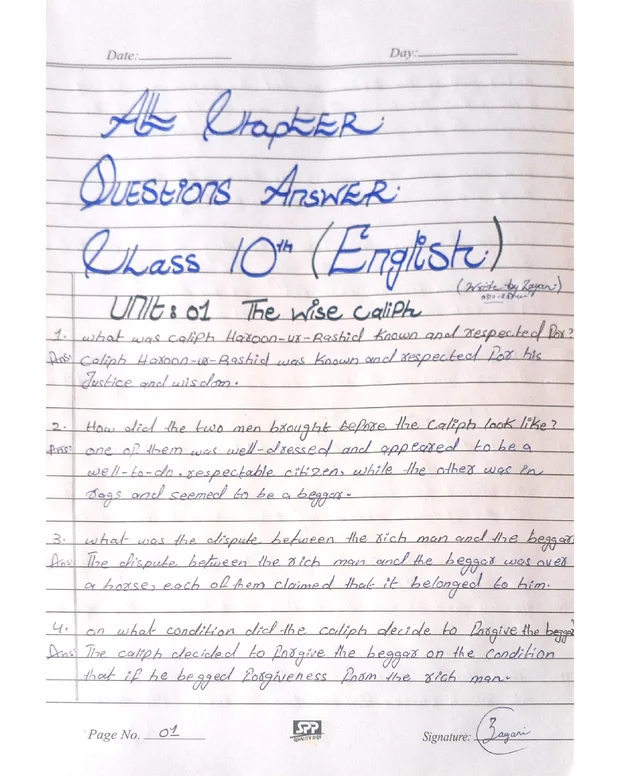 Date:
Day:
All Chapter
Questions Answer
Class 10th (English)
UNIT: 01 The wise caliph
1. what was caliph Haroon-ur-Rashid known and respected for?
Ans: Caliph Haroon-ur-Rashid was known and respected for his
Justice and wisdom.
2. How did the two men brought before the Caliph look like?
Ans: one of them was well-dressed and appeared to be a
well-to-do, respectable citizen, while the other was in
rags and seemed to be a beggar.
3. what was the dispute between the rich man and the beggar
Ans: The dispute between the rich man and the beggar was over
a horse, each of them claimed that it belonged to him.
4. on what condition did the caliph decide to forgive the beggar?
Ans: The caliph decided to forgive the beggar on the condition
that if he begged forgiveness form the rich man.
Page No. 01
SPP
Signature: Zayari